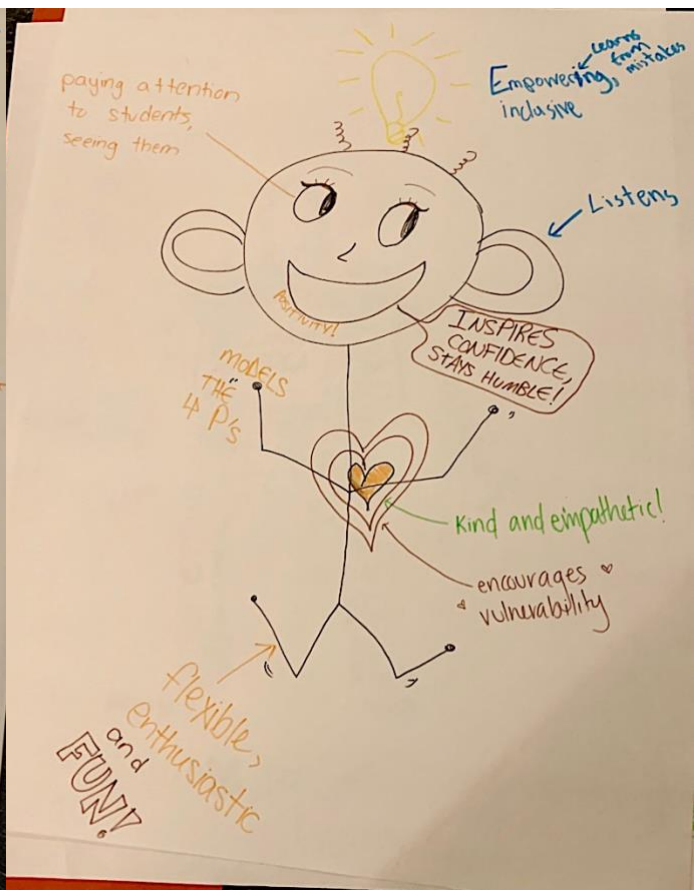 paying attention
to students,
seeing them
Empowering,
inclusive
Learns
from
mistakes
Listens
POSITIVITY!
INSPIRES
CONFIDENCE,
STAYS HUMBLE!
MODELS
THE
4 P's
Kind and empathetic!
encourages
vulnerability
flexible,
enthusiastic
and
FUN!